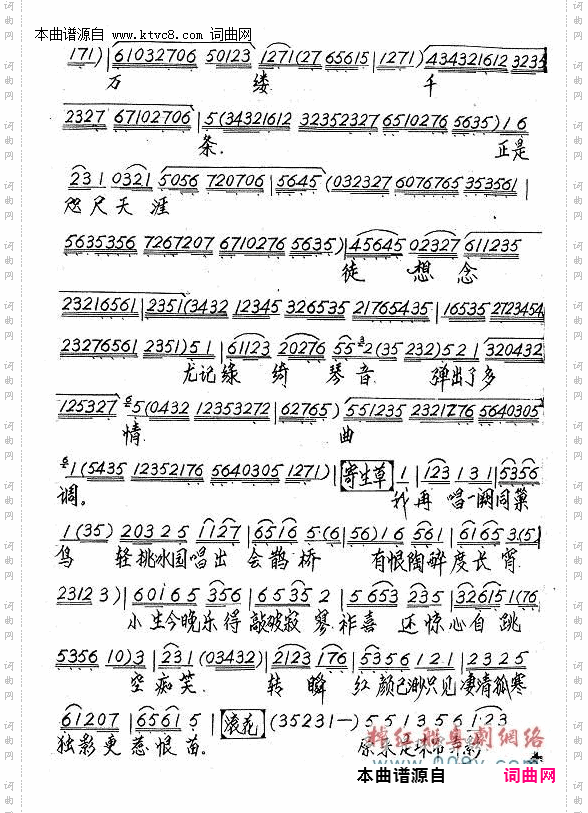 本曲谱源自 www.ktvc8.com 词曲网
171) | 61032706 50123 | 1271 (27 65615 | 1271) | 434321612 3235
万 缕 千
2327 67102706 | 5 (34321612 32352327 6510276 5635) 1 6
条. 正是
231 0321 5056 720706 | 5645 (032327 6076765 353561 |
咫尺天涯
5635356 7267207 6710276 5635) | 45645 02327 611235
徒 想 念
23216561 | 2351 (3432 12345 326535 21765435 | 16535 2723454
23276561 2351) 5 1 | 61123 20276 55 2 (35 232) 5 2 1 | 320432
尤记绿 绮 琴 音 弹出了多
125327 5 (0432 12353272 | 62765) | 551235 2321276 5640305
情 曲
1 (5435 12352176 5640305 1271) | 寄生草 1 | 123 1 3 1 | 5356
调。 我再 唱一阙同巢
1 (35) 20325 1127 | 6516 5 (6 | 56) 16 561 | 6165 3 (5)
鸟 轻挑冰国唱出 会鹊桥 有恨陶醉度长宵
2312 3) | 60165 356 | 6535 2 | 5 653 235 | 3 26151 (76
小生今晚乐得敲破寂 寥 祚喜 还惊心自 跳
5356 10) 3 | 231 (03432) | 2123 176 | 5356 121 | 2325
空痴笑 转 瞬 红颜已渺只见凄清孤寒
61207 | 65615 | 滚花 (35231一) 5 5 1 3 5 6 1 2 3
独影更惹恨苗.
本曲谱源自 词曲网